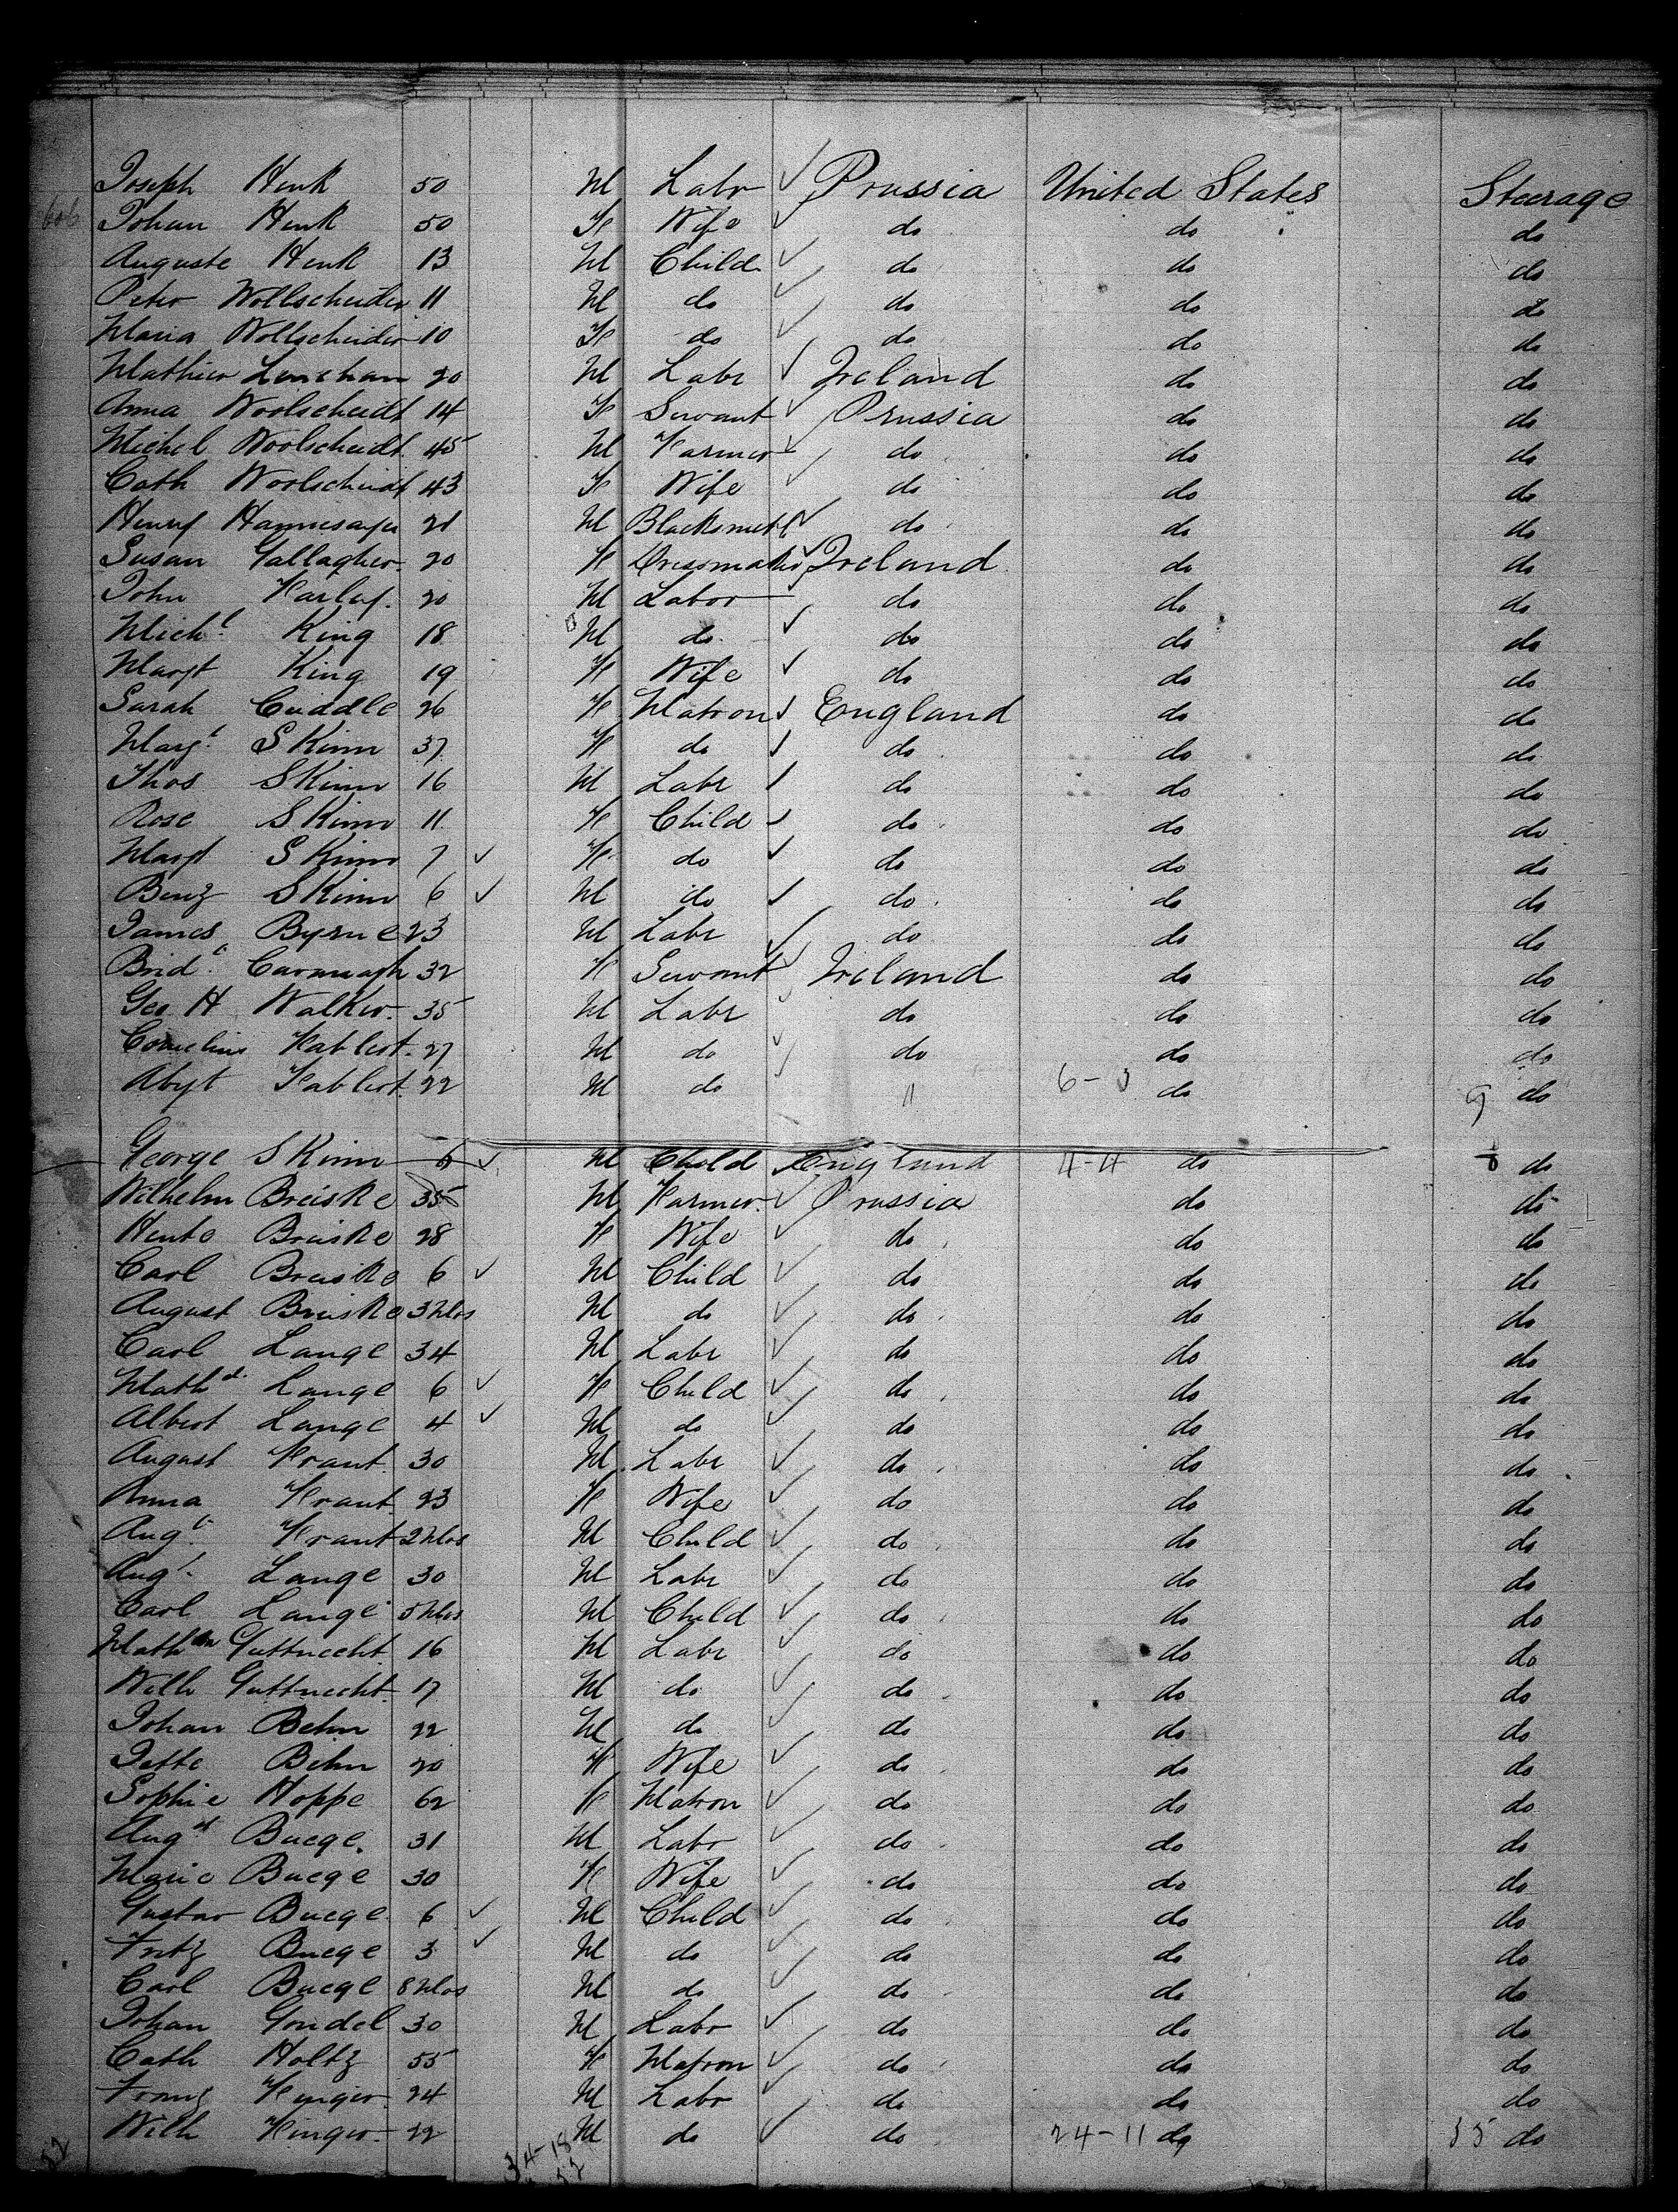 Joseph Henk 50 M Labr ✓ Prussia United States Steerage
606 Johan Henk 50 F Wife ✓ do do do
Auguste Henk 13 M Child ✓ do do do
Peter Wollscheider 11 M do ✓ do do do
Maria Wollscheider 10 F do ✓ do do do
Mathew Lenehan 20 M Labr ✓ Ireland do do
Anna Woolscheidt 14 F Servant ✓ Prussia do do
Michel Woolscheidt 45 M Farmer ✓ do do do
Cath Woolscheidt 43 F Wife ✓ do do do
Henry 21 M Blacksmith ✓ do do do
Susan Gallagher 20 F Dressmaker ✓ Ireland do do
John Farley 20 M Labor ✓ do do do
Michl King 18 M do ✓ do do do
Margt King 19 F Wife ✓ do do do
Sarah Cuddle 26 F Matron ✓ England do do
Margt Skinn 37 F do ✓ do do do
Thos Skinn 16 M Labr ✓ do do do
Rose Skinn 11 F Child ✓ do do do
Margt Skinn 7 ✓ F do ✓ do do do
Benj Skinn 6 ✓ M do ✓ do do do
James Byrne 23 M Labr ✓ do do do
Bridt Cavanagh 32 F Servant ✓ Ireland do do
Geo H Walker 35 M Labr ✓ do do do
Cornelius 27 M do ✓ do do do
22 M do " 6-3 do 9 do
George Skinn 5 ✓ M Child England 4-4 do 8 do
Wilhelm Breiske 35 M Farmer ✓ Prussia do do
Hente Breiske 28 F Wife ✓ do do do
Carl Breiske 6 ✓ M Child ✓ do do do
August Breiske 3 Mos M do ✓ do do do
Carl Lange 34 M Labr ✓ do do do
Mathd Lange 6 ✓ F Child ✓ do do do
Albert Lange 4 ✓ M do ✓ do do do
August Krant 30 M Labr ✓ do do do
Anna Krant 23 F Wife ✓ do do do
Augt Krant 2 Mos M Child ✓ do do do
Augt Lange 30 M Labr ✓ do do do
Carl Lange 5 Mos M Child ✓ do do do
Guttnecht 16 M Labr ✓ do do do
Wilh Guttnecht 17 M do ✓ do do do
Johan Behn 22 M do ✓ do do do
Jette Behn 20 F Wife ✓ do do do
Sophie Hoppe 62 F Matron ✓ do do do
Augst Buege 31 M Labr ✓ do do do
Marie Buege 30 F Wife ✓ do do do
Gustav Buege 6 ✓ M Child ✓ do do do
Fritz Buege 3 ✓ M do ✓ do do do
Carl Buege 8 Mos M do ✓ do do do
Johan Gondel 30 M Labr ✓ do do do
Cath Holtz 55 F Matron ✓ do do do
Franz 24 M Labr ✓ do do do
Wilh 22 M do ✓ do 24-11 do 35 do
52 34-18
52